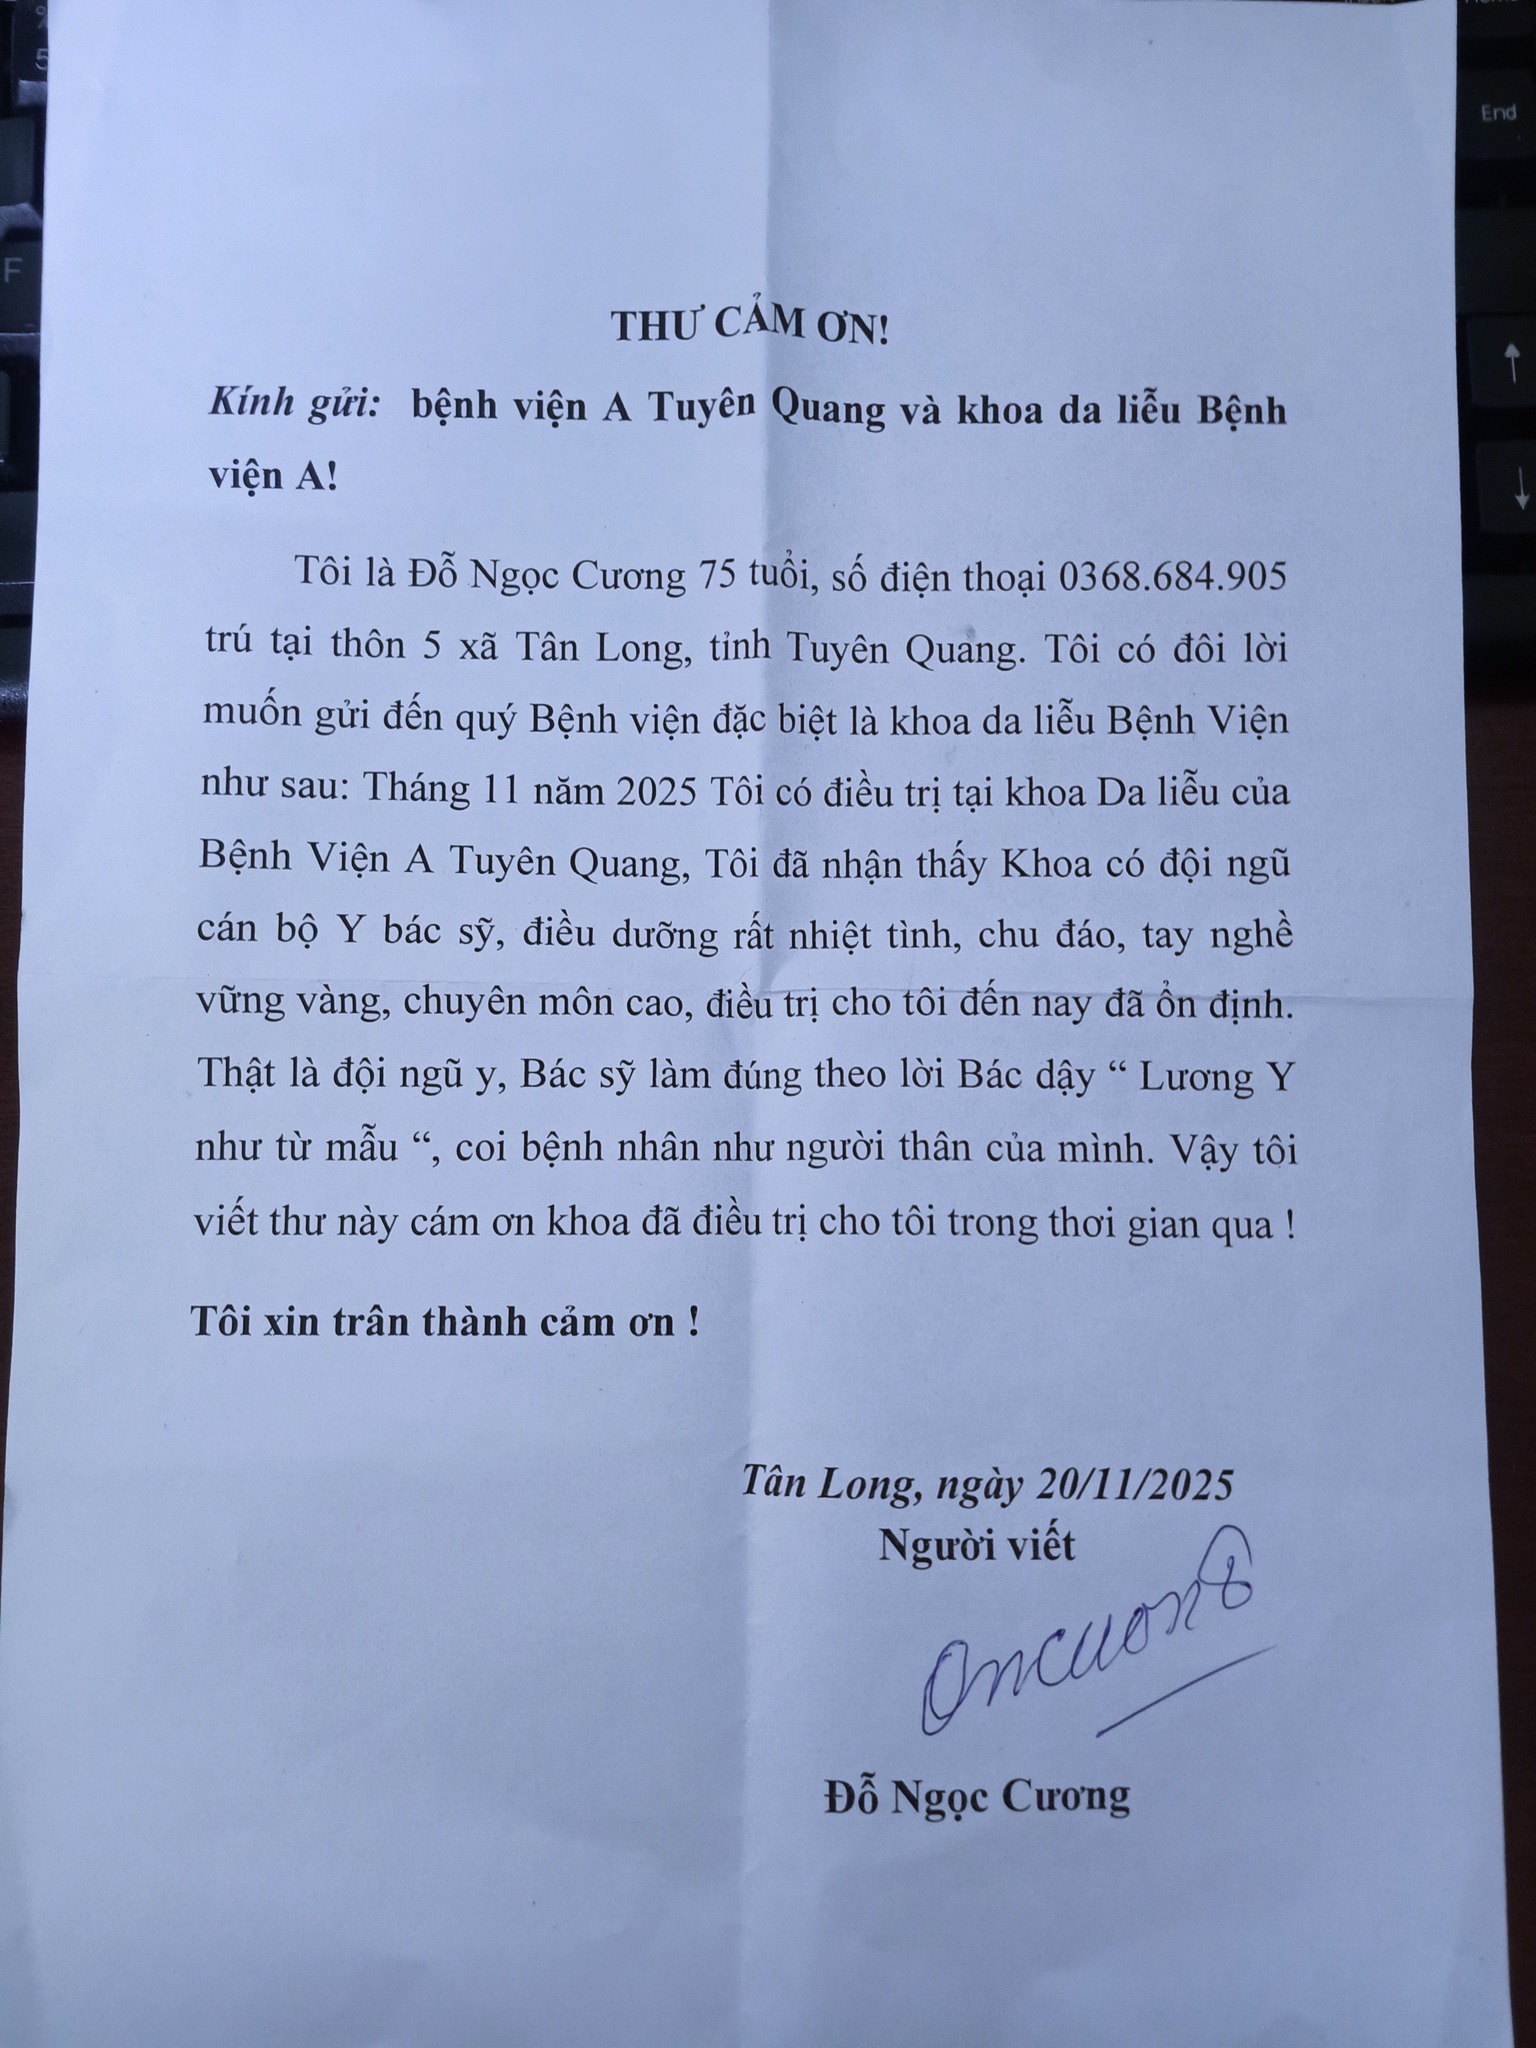 THƯ CẢM ƠN!
Kính gửi: bệnh viện A Tuyên Quang và khoa da liễu Bệnh
viện A!
Tôi là Đỗ Ngọc Cương 75 tuổi, số điện thoại 0368.684.905
trú tại thôn 5 xã Tân Long, tỉnh Tuyên Quang. Tôi có đôi lời
muốn gửi đến quý Bệnh viện đặc biệt là khoa da liễu Bệnh Viện
như sau: Tháng 11 năm 2025 Tôi có điều trị tại khoa Da liễu của
Bệnh Viện A Tuyên Quang, Tôi đã nhận thấy Khoa có đội ngũ
cán bộ Y bác sỹ, điều dưỡng rất nhiệt tình, chu đáo, tay nghề
vững vàng, chuyên môn cao, điều trị cho tôi đến nay đã ổn định.
Thật là đội ngũ y, Bác sỹ làm đúng theo lời Bác dậy “ Lương Y
như từ mẫu “, coi bệnh nhân như người thân của mình. Vậy tôi
viết thư này cám ơn khoa đã điều trị cho tôi trong thơi gian qua !
Tôi xin trân thành cảm ơn !
Tân Long, ngày 20/11/2025
Người viết
Đỗ Ngọc Cương
5
F
End
↑
↓